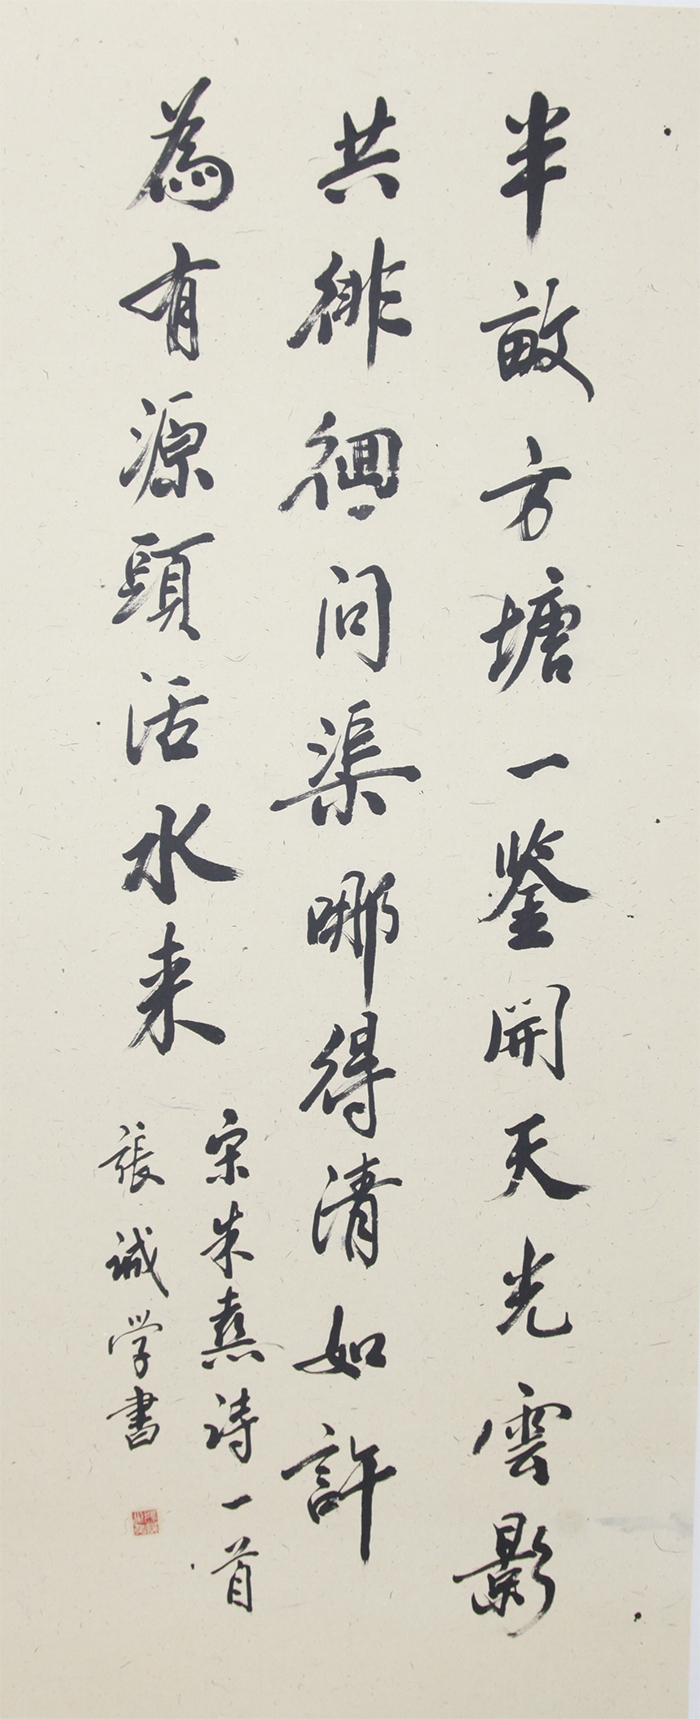 半畝方塘一鉴開天光雲影
共徘徊问渠哪得清如許
為有源頭活水来
宋朱熹诗一首
張诚学書